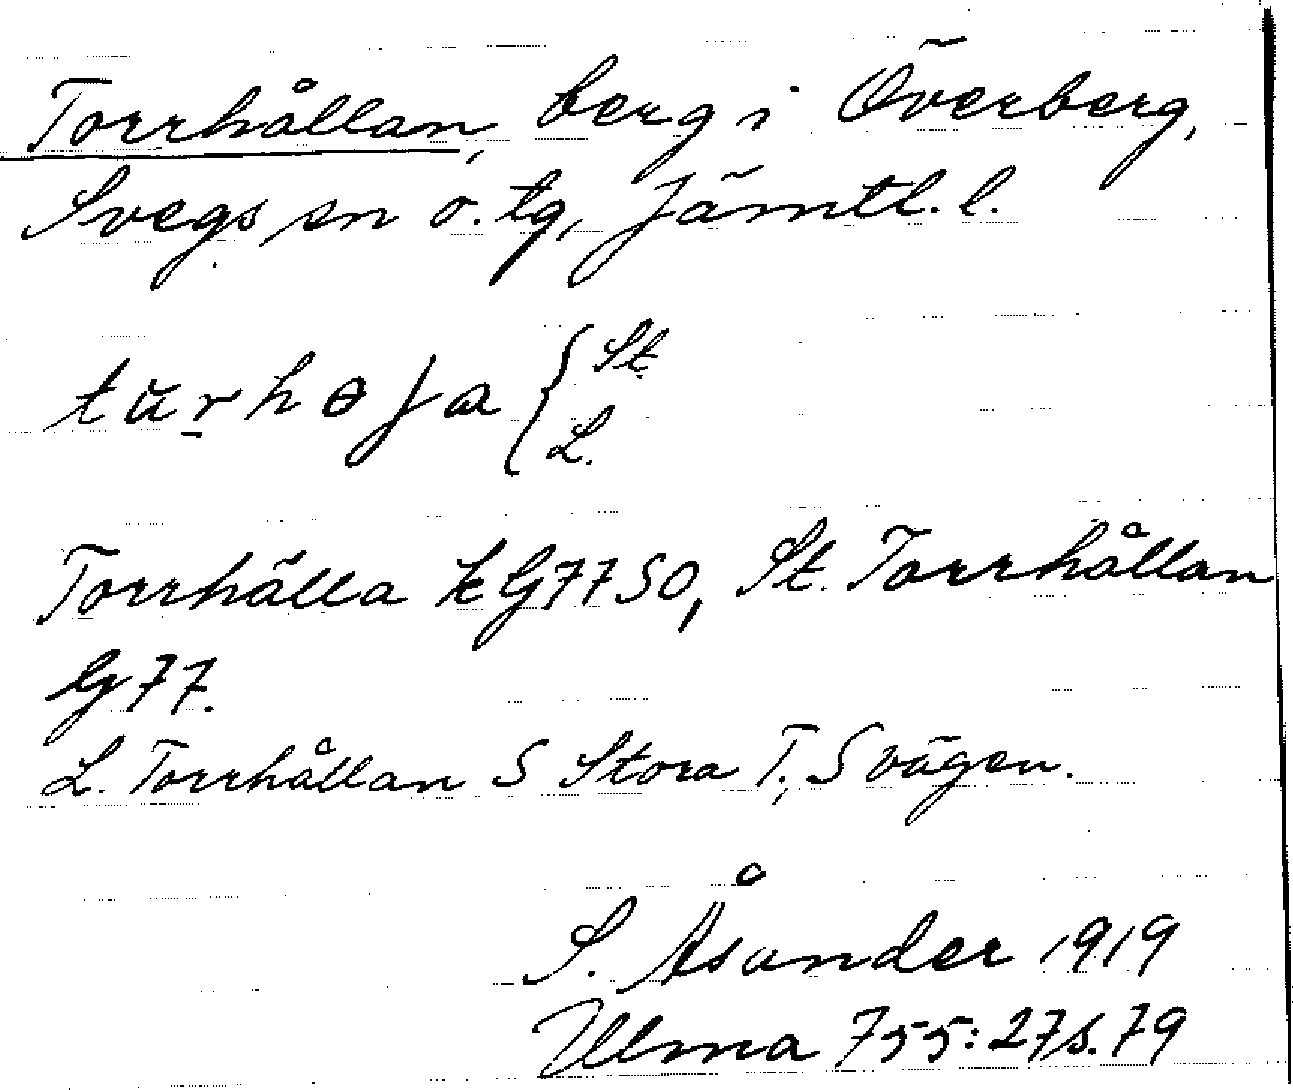 Torrhållan, berg i Överberg,
Svegs sn o. tg, Jämtl. l.
tŭr̠hɵʃa { St.
L.
Torrhålla kG77SO, St. Torrhållan
G77.
L. Torrhållan S Stora T., S vägen.
S. Åsander 1919
Ulma 755:27 s. 79